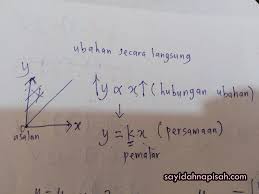 ubahan secara langsung
y
↑y ∝ x↑ (hubungan ubahan)
↓
y = kx (persamaan)
pemalar
x
asalan
sayidahnapisah.com